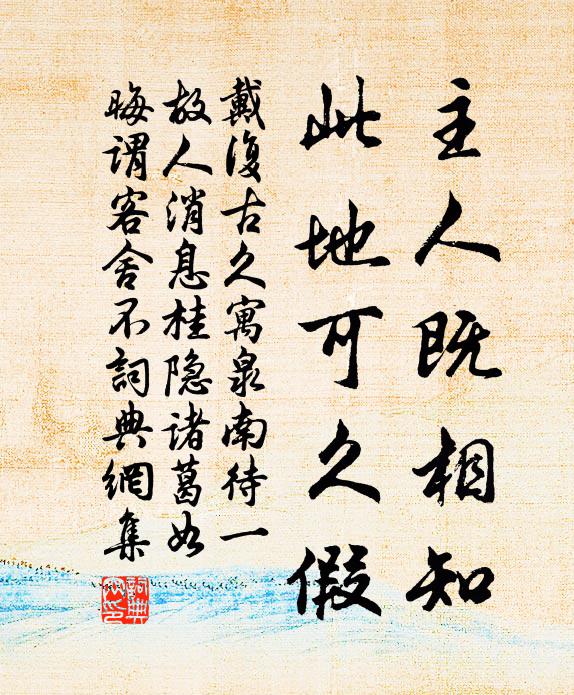 主人既相知
此地可久假
戴復古久寓泉南待一
故人消息桂隐諸葛如
晦谓客舍不詞典網集
詞典